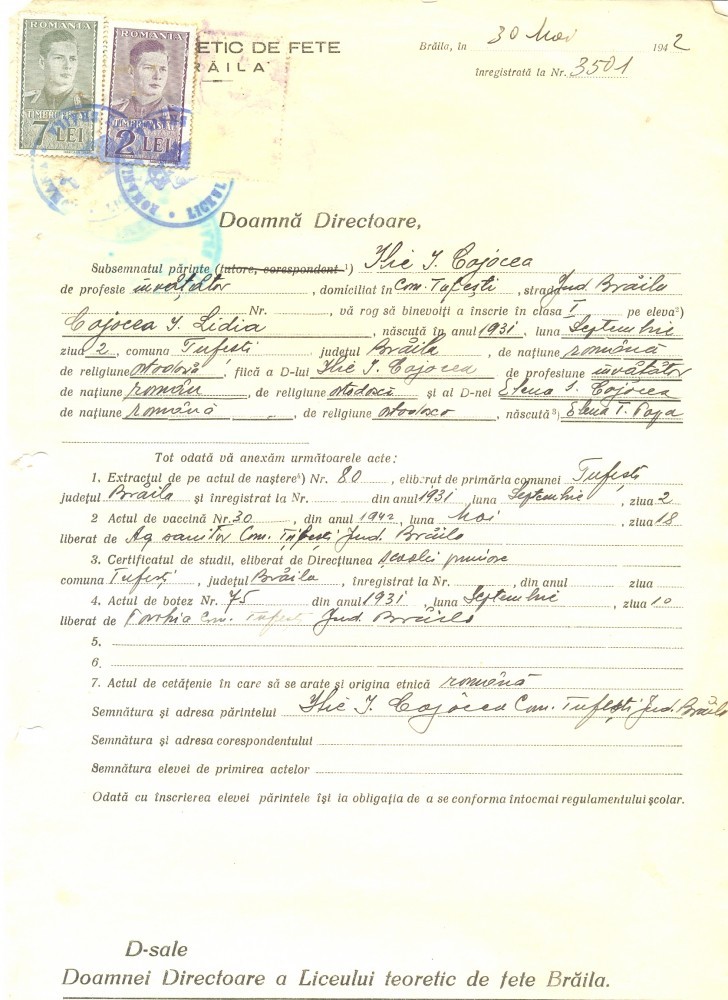 ROMANIA
ROMANIA
TIMBRU FISCAL
TIMBRU FISCAL
7 LEI
2 LEI
ETIC DE FETE
RĂILA
LICEUL
Brăila, în 30 Mai 1942
înregistrată la Nr. 3501
Doamnă Directoare,
Subsemnatul părinte (tutore, corespondent ¹) Ilie I. Cojocea
de profesie învățător, domiciliat în Com. Tufești, strad Jud Brăila
Nr. , vă rog să binevoiți a înscrie în clasa I pe eleva²)
Cojocea I. Lidia, născută în anul 1931, luna Septembrie
ziua 2, comuna Tufești județul Brăila, de națiune română
de religiune ortodoxă, fiică a D-lui Ilie I. Cojocea de profesiune învățător
de națiune român, de religiune ortodoxă și al D-nei Elena I. Cojocea
de națiune română, de religiune ortodoxă, născută³) Elena T. Popa
Tot odată vă anexăm următoarele acte:
1. Extractul de pe actul de naștere⁴) Nr. 80, eliberat de primăria comunei Tufești
județul Brăila și înregistrat la Nr. din anul 1931, luna Septembrie, ziua 2
2 Actul de vaccină Nr. 30, din anul 1942, luna Mai, ziua 18
liberat de Ag sanitar Com. Tufești Jud. Brăila
3. Certificatul de studii, eliberat de Direcțiunea școalei primare
comuna Tufești, județul Brăila, înregistrat la Nr. , din anul ziua
4. Actul de botez Nr. 75 din anul 1931, luna Septembrie, ziua 10
liberat de Com. Tufești Jud. Brăila
5.
6.
7. Actul de cetățenie în care să se arate și origina etnică română
Semnătura și adresa părintelui Ilie I. Cojocea Com. Tufești Jud. Brăila
Semnătura și adresa corespondentului
Semnătura elevei de primirea actelor
Odată cu înscrierea elevei părintele își ia obligația de a se conforma întocmai regulamentului școlar.
D-sale
Doamnei Directoare a Liceului teoretic de fete Brăila.